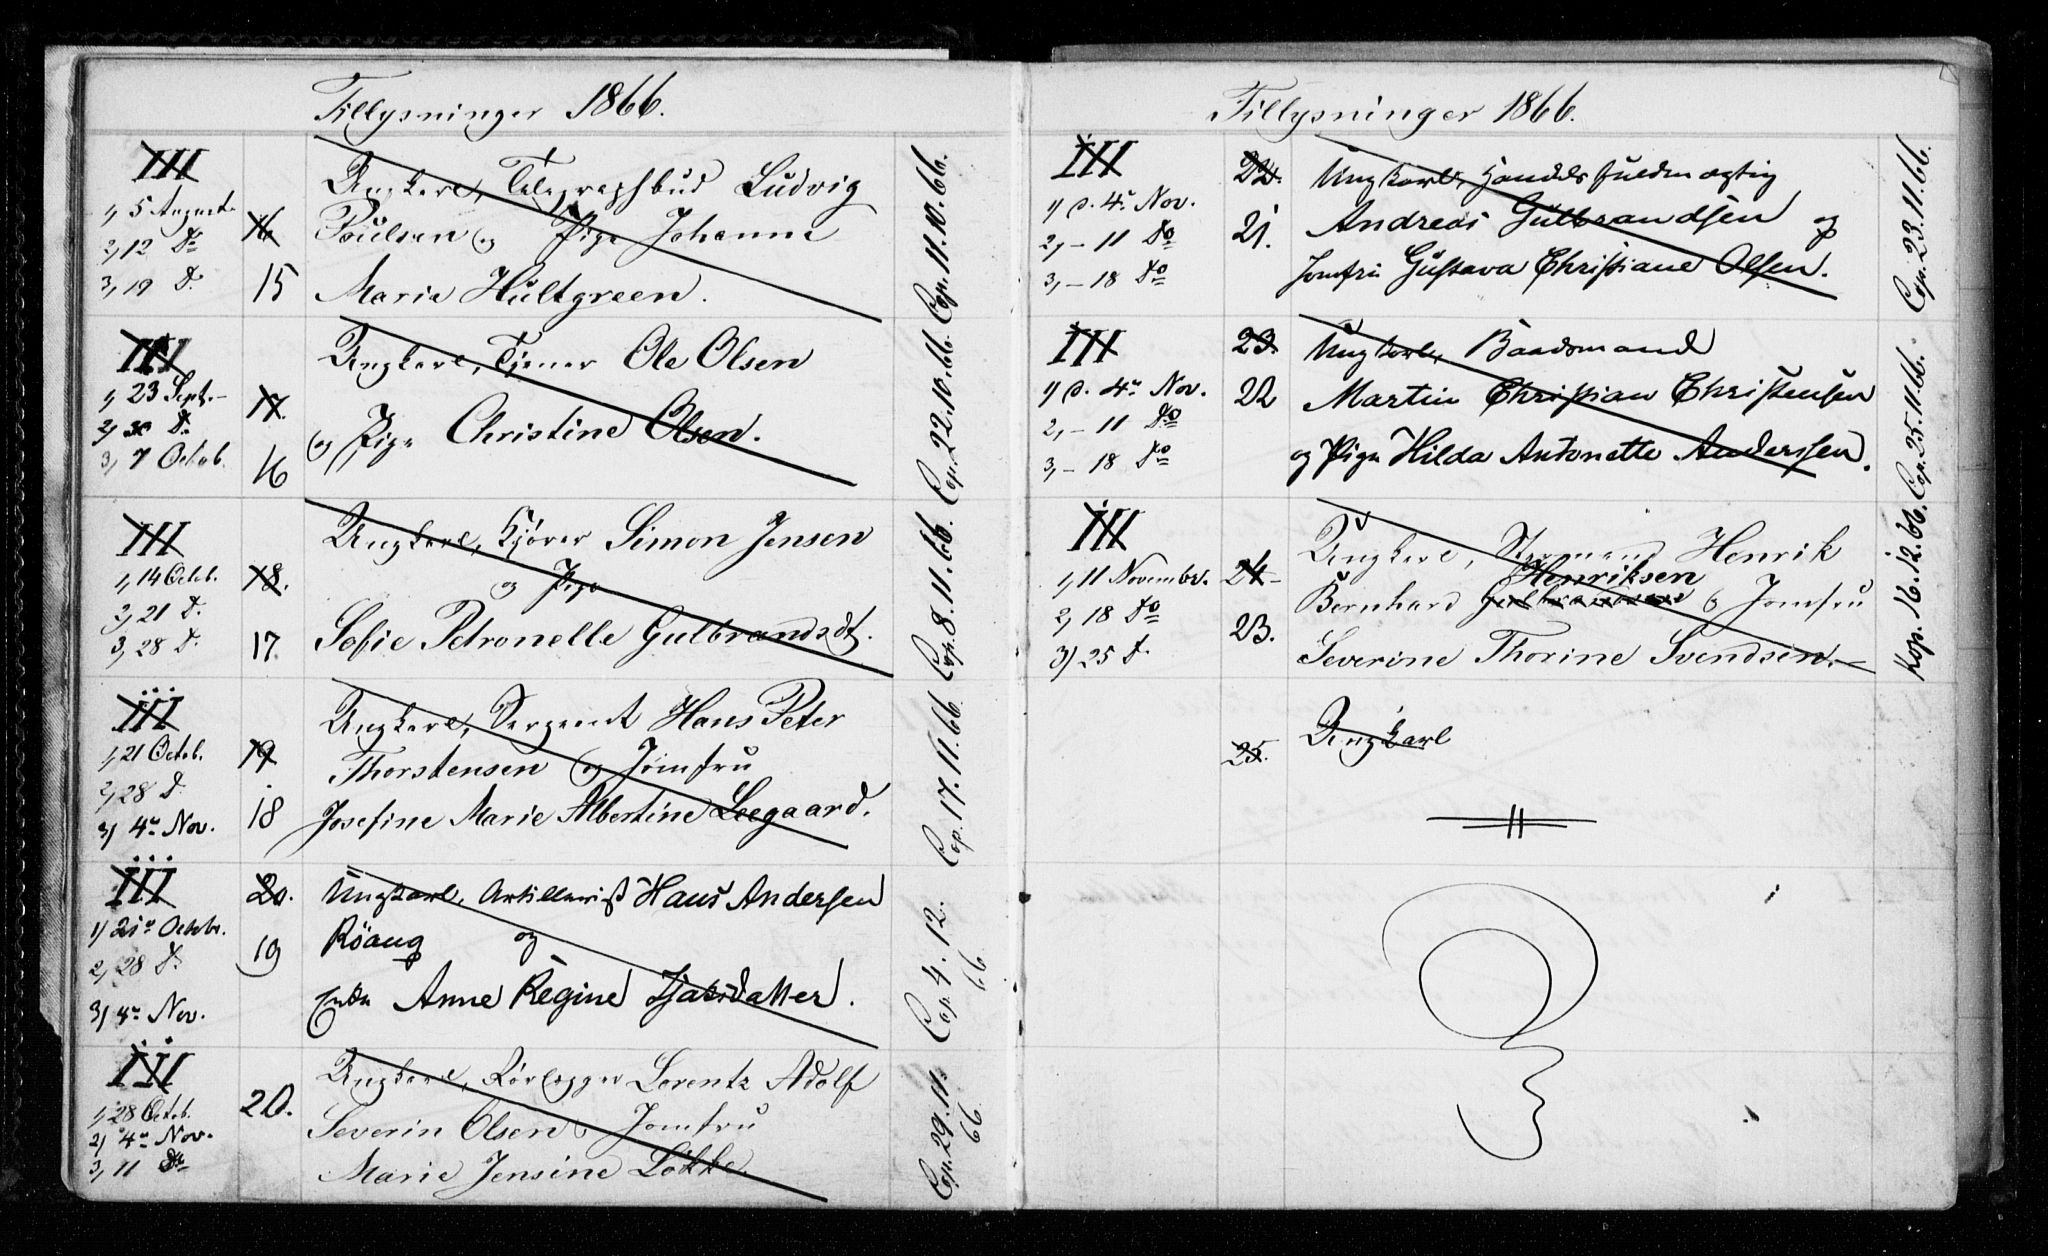 Tillysninger 1866.
III
1, 5 August.
2, 12 Do
3, 19 D.
16
15
Ungkarl, Telegraphbud Ludvig
Poulsen og Pige Johanne
Marie Hultgreen.
Cop. 11. 10. 66.
III
1, 23 Sept. –
2, 30 D.
3, 7 Octob.
17.
16
Ungkarl, Tjener Ole Olsen
og Pige Christine Olsen.
Cop. 22. 10. 66.
III
1, 14 Octob.
2, 21 D.
3, 28 D.
18.
17.
Ungkarl, Kjører Simon Jensen
og Pige
Sofie Petronelle Gulbrandsdt.
Cop. 8. 11. 66.
III
1, 21 Octob.
2, 28 D.
3) 4de Nov.
19
18
Ungkarl, Sergeant Hans Peter
Thorstensen og Jomfru
Josefine Marie Albertine Leegaard.
Cop. 17. 11. 66
III
1) 21de Octobr.
2, 28 D.
3) 4de Nov.
20.
19
Ungkarl, Artillerist Hans Andersen
Röaug og
Enke Anne Regine
Cop. 4. 12.
66
III
1, 28 Octob.
2) 4de Nov.
3, 11 Do
20.
Ungkarl, Rørlægger Lorentz Adolf
Severin Olsen & Jomfru
Marie Jensine Løkke.
Cop. 29. 11.
66
Tillysninger 1866.
III
1) d. 4de Nov.
2, – 11 Do
3, – 18 Do
22.
21.
Ungkarl, Handelsfuldmægtig
Andreas Gulbrandsen og
Jomfru Gustava Christiane Olsen.
Cop. 23. 11. 66.
III
1) d. 4de Nov.
2, – 11 Do
3, – 18 Do
23.
22
Ungkarl, Baadsmand
Martin Christian Christensen
og Pige Hilda Antonette Anderssen.
Cop. 25. 11. 66.
III
1, 11 Novembr.
2, 18 Do
3) 25 D.
24 –
23.
Ungkarl, Styrmand Henrik
Henriksen
Bernhard Gulbrandsen & Jomfru
Severine Thorine Svendsen. –
Kop. 16. 12. 66.
25.
Ungkarl